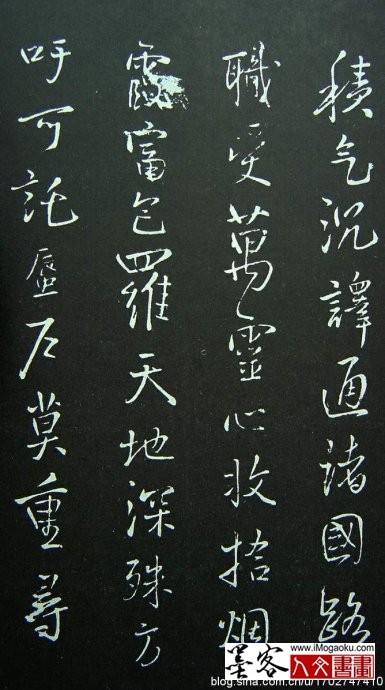 積气沉譯通諸國路
職受萬靈心收拾烟
霞富包羅天地深殊方
吁可託蜃尺莫重尋
www.iMogaoku.com
墨客
blog.sina.com.cn/u/1702747410